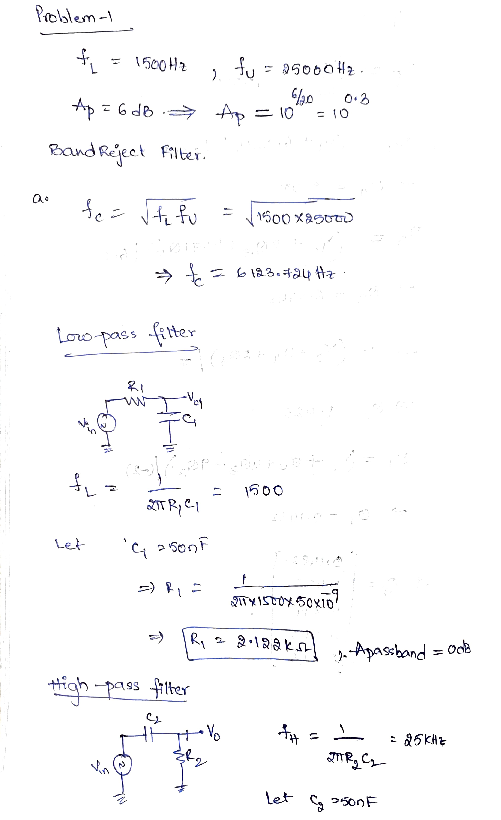 Problem-1
f_L = 1500Hz , f_U = 25000Hz.
Ap = 6dB. ⇒ Ap = 10^(6/20) = 10^0.3
Band Reject Filter.
a. f_c = √(f_L f_U) = √(1500×25000)
⇒ f_c = 6123.724 Hz.
Low-pass filter
R1
Vin C1 Vo1
f_L = 1/(2πR1C1) = 1500
Let C1 = 50nF
⇒ R1 = 1/(2π×1500×50×10^-9)
⇒ R1 = 2.122kΩ , Apassband = 0dB
High-pass filter
C2 Vo f_H = 1/(2πR2C2) = 25KHz
Vin R2
Let C2 = 50nF